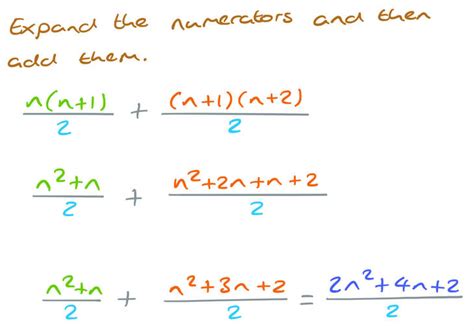 Expand the numerators and then
add them.
n(n+1)/2 + (n+1)(n+2)/2
n²+n/2 + n²+2n+n+2/2
n²+n/2 + n²+3n+2/2 = 2n²+4n+2/2